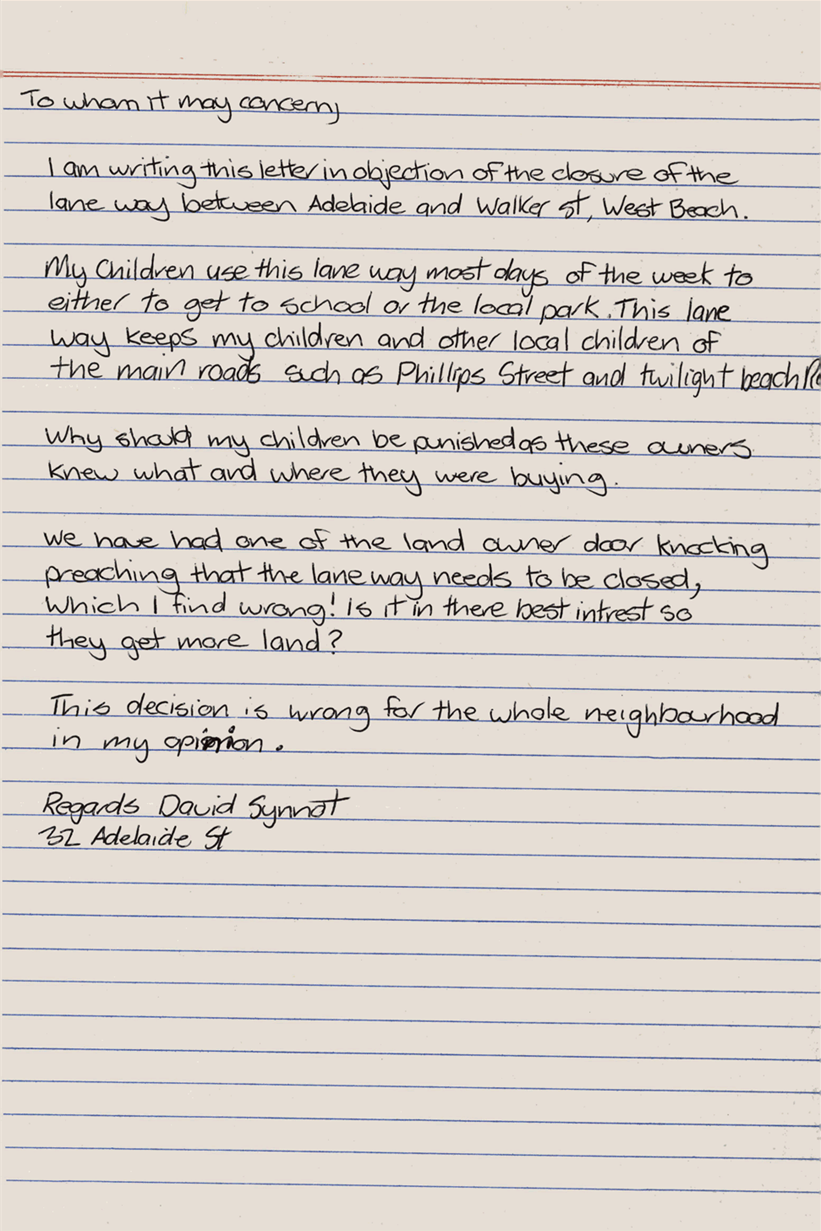 To whom it may concern,
I am writing this letter in objection of the closure of the
lane way between Adelaide and Walker st, West Beach.
My Children use this lane way most days of the week to
either to get to school or the local park. This lane
way keeps my children and other local children of
the main roads such as Phillips Street and twilight beach
Why should my children be punished as these owners
knew what and where they were buying.
we have had one of the land owner door knocking
preaching that the lane way needs to be closed,
which I find wrong! Is it in there best intrest so
they get more land?
This decision is wrong for the whole neighbourhood
in my opinion.
Regards David Synnot
32 Adelaide St